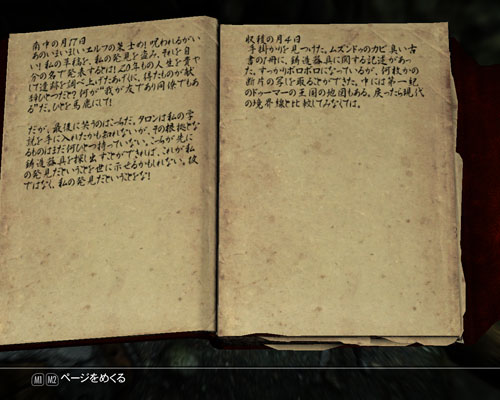 南中の月17日
あのいまいましいエルフの策士め！呪われるがい
い！私の草稿を、私の発見を盗み、それを自
分の名で発表するとは！20年もの人生を費や
して遺跡を調べ上げたあげくに、得たものが献
辞ひとつだと？何が"我が友であり同僚でもあ
る"だ。ひとを馬鹿にして！
だが、最後に笑うのはこっちだ。タロンは私の学
説を手に入れたかもしれないが、その根拠とな
るものはまだ何ひとつ持っていない。こっちが先に
鋳造器具を探し出すことができれば、これが私
の発見だということを世に示せるかもしれない。彼
ではなく、私の発見だということをな！
収穫の月4日
手掛かりを見つけた。ムズンドゥのカビ臭い古
書の1冊に、鋳造器具に関する記述があっ
た。すっかりボロボロになっているが、何枚かの
断片の写しを取ることができた。中には第一紀
のドゥーマーの王国の地図もある。戻ったら現代
の境界線と比較してみなくては。
M1 M2 ページをめくる